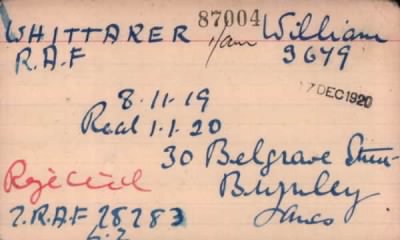 87004
WHITTAKER 1/am William
R.A.F 3649
17 DEC 1920
8.11.19
Recd 1.1.20
30 Belgrave Street
Rejected Burnley
Lancs
2.R.A.F 28283